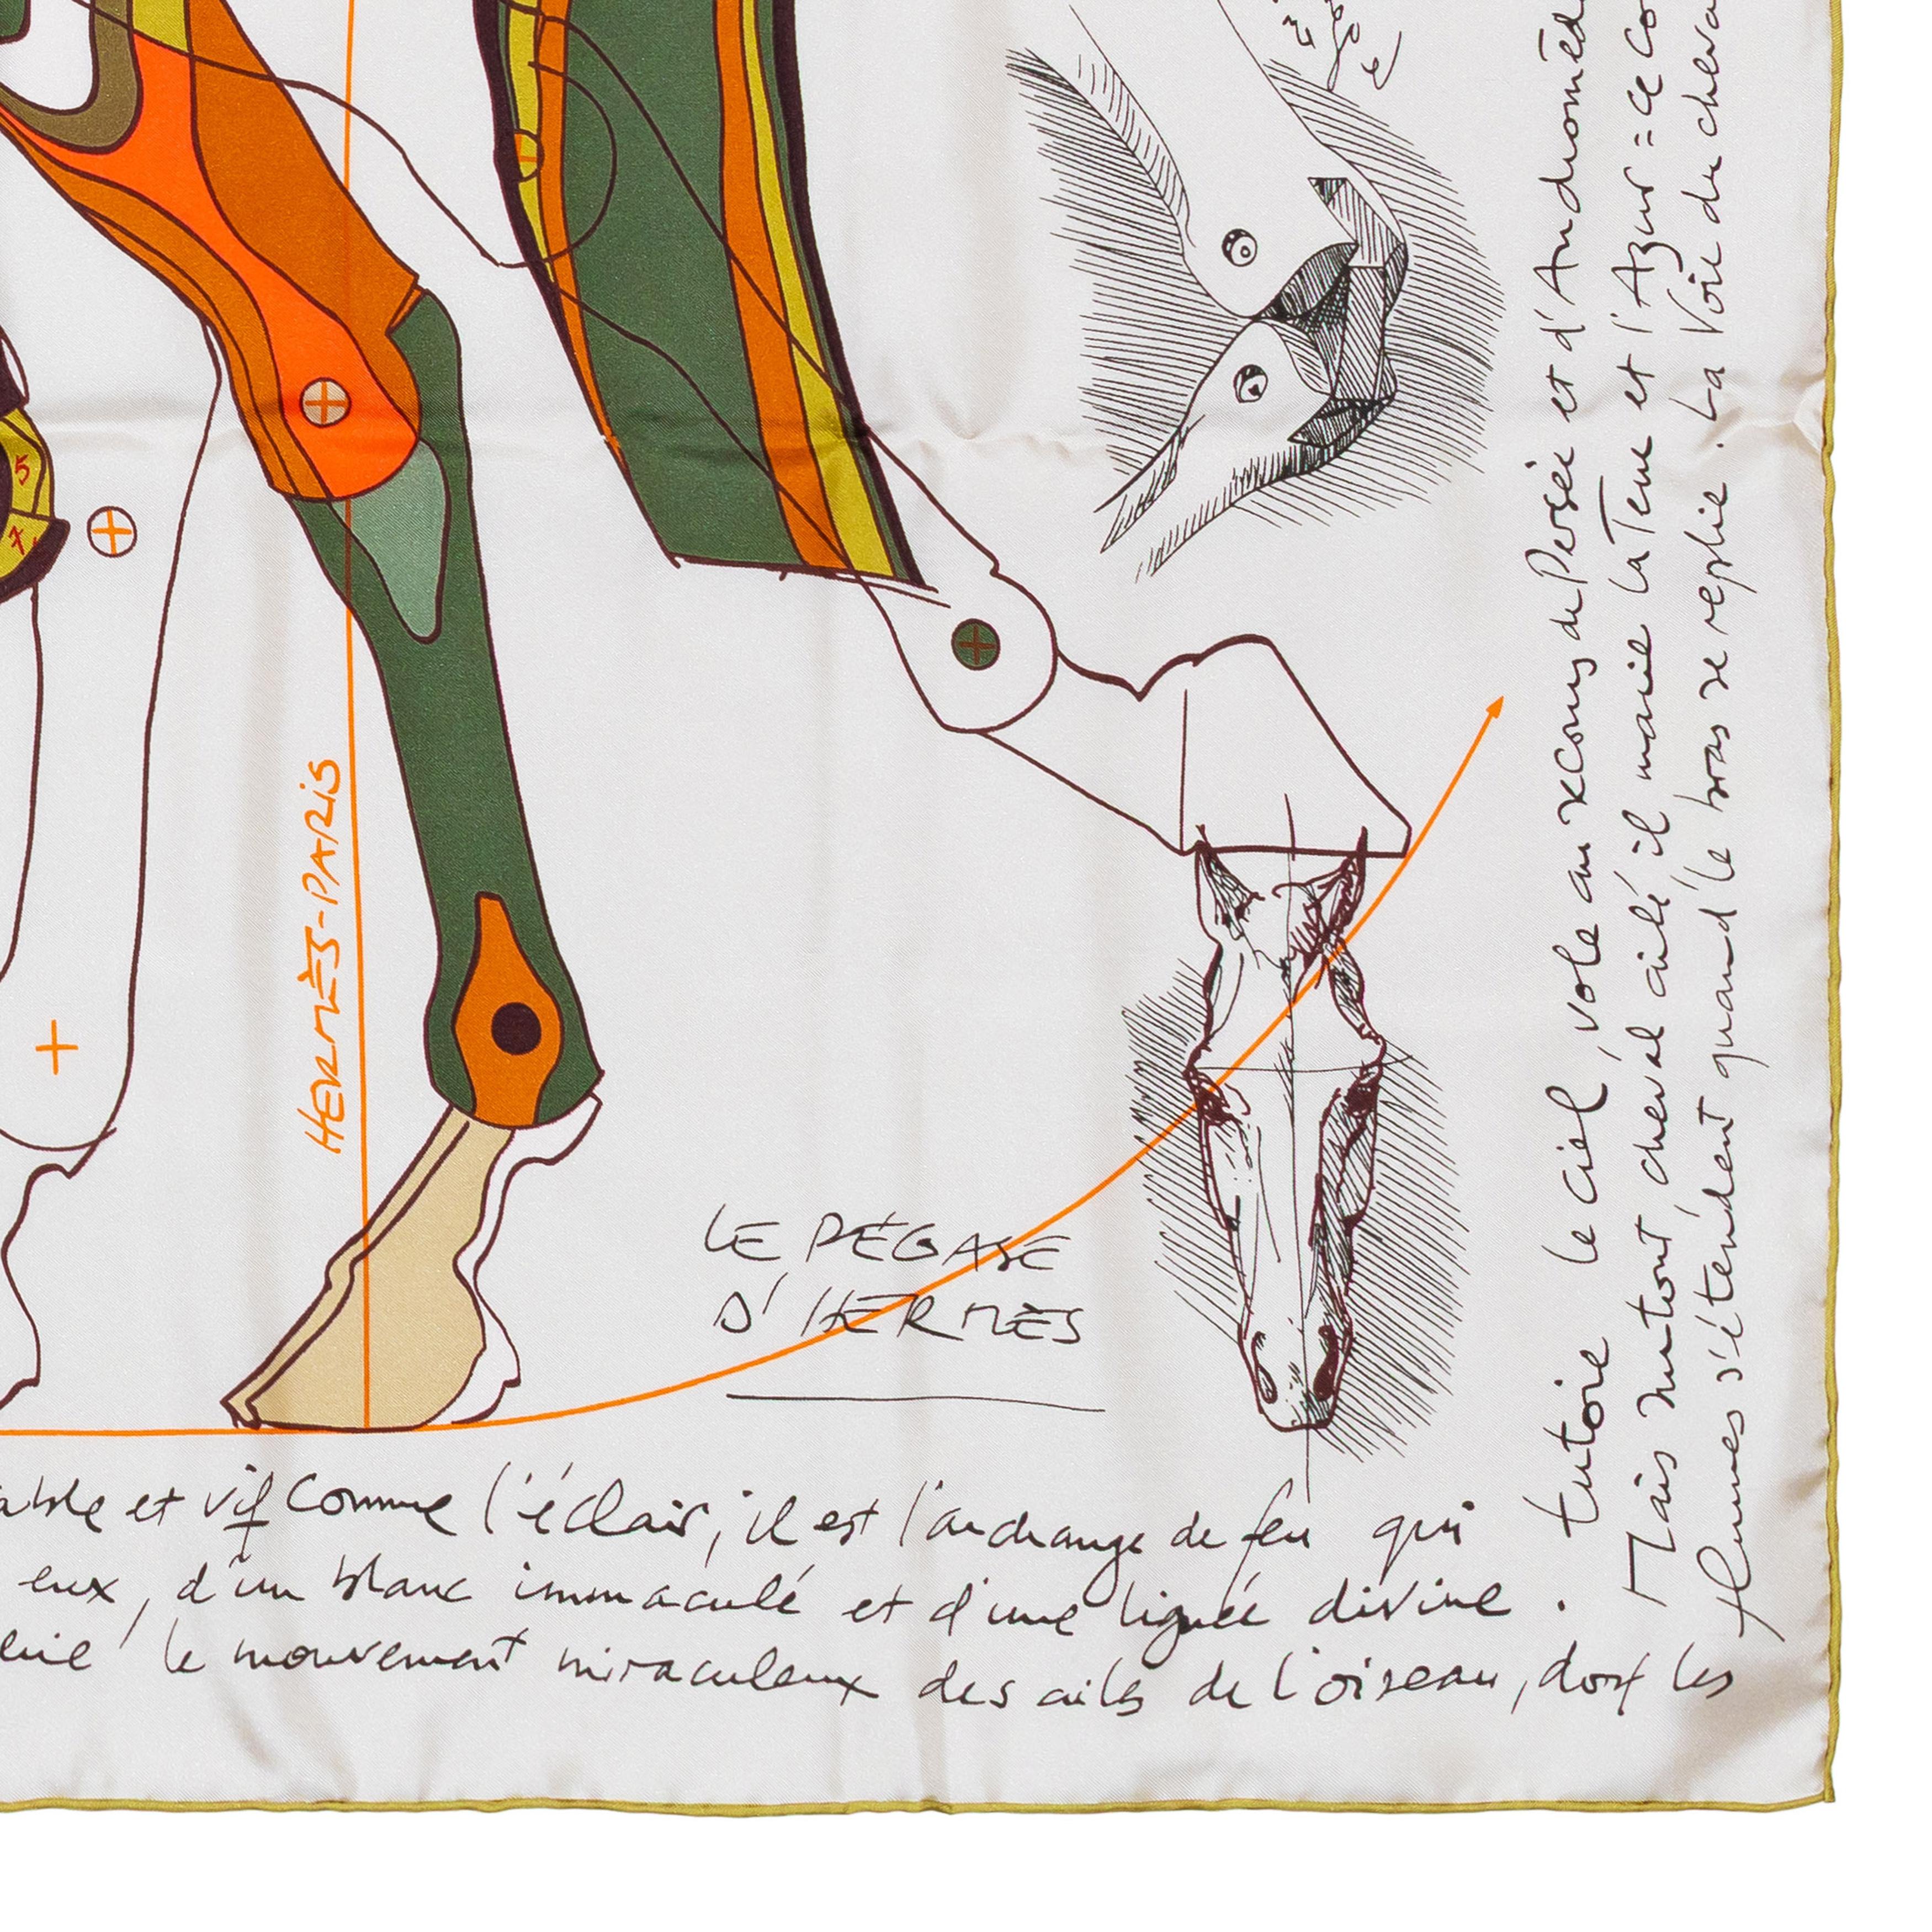 5
7
HERMÈS-PARIS
LE PÉGASE
D'HERMÈS
et vif comme l'éclair, il est l'archange de feu qui
eux, d'un blanc immaculé et d'une lignée divine.
le mouvement miraculeux des ailes de l'oiseau, dont les
tutoie le ciel, vole au secours de Persée et d'Andromède
Mais surtout cheval ailé il marie la Terre et l'Azur = ce
plumes s'étendent quand le bras se replie. La Voie du